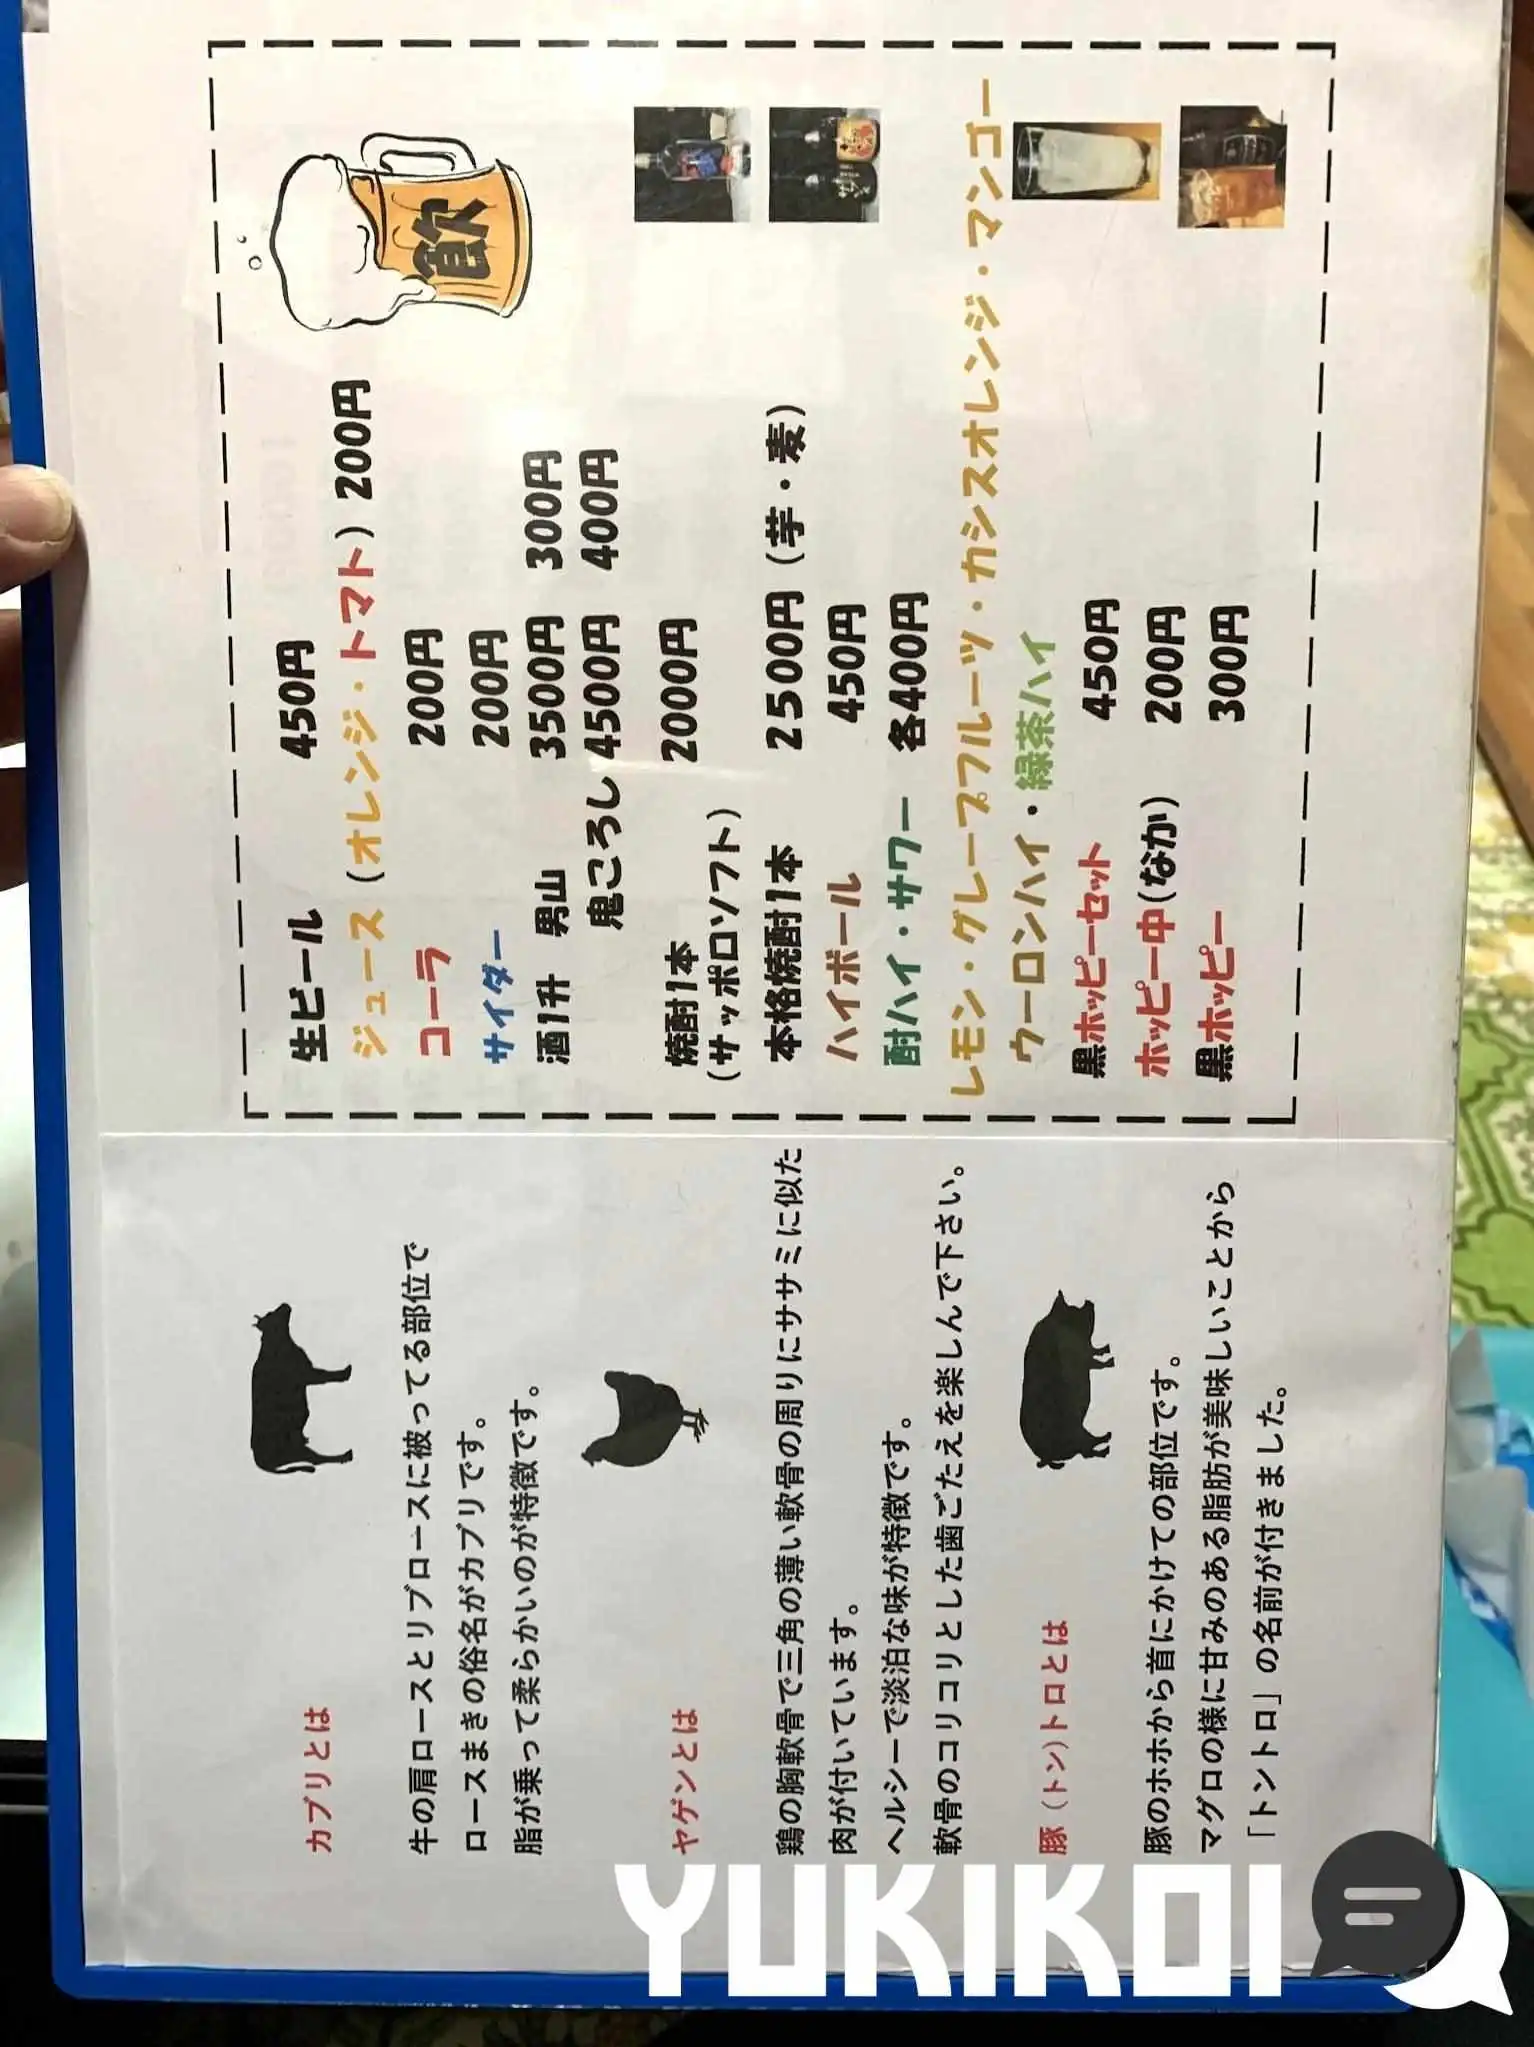 飲
生ビール 450円
ジュース (オレンジ・トマト) 200円
コーラ 200円
サイダー 200円
酒1升 男山 3500円 300円
鬼ころし 4500円 400円
焼酎1本 2000円
(サッポロソフト)
本格焼酎1本 2500円 (芋・麦)
ハイボール 450円
酎ハイ・サワー 各400円
レモン・グレープフルーツ・カシスオレンジ・マンゴー
ウーロンハイ・緑茶ハイ
黒ホッピーセット 450円
ホッピー中(なか) 200円
黒ホッピー 300円
カブリとは
牛の肩ロースとリブロースに被ってる部位で
ロースまきの俗名がカブリです。
脂が乗って柔らかいのが特徴です。
ヤゲンとは
鶏の胸軟骨で三角の薄い軟骨の周りにササミに似た
肉が付いています。
ヘルシーで淡泊な味が特徴です。
軟骨のコリコリとした歯ごたえを楽しんで下さい。
豚(トン)トロとは
豚のホホから首にかけての部位です。
マグロの様に甘みのある脂肪が美味しいことから
「トントロ」の名前が付きました。
YUKIKOI